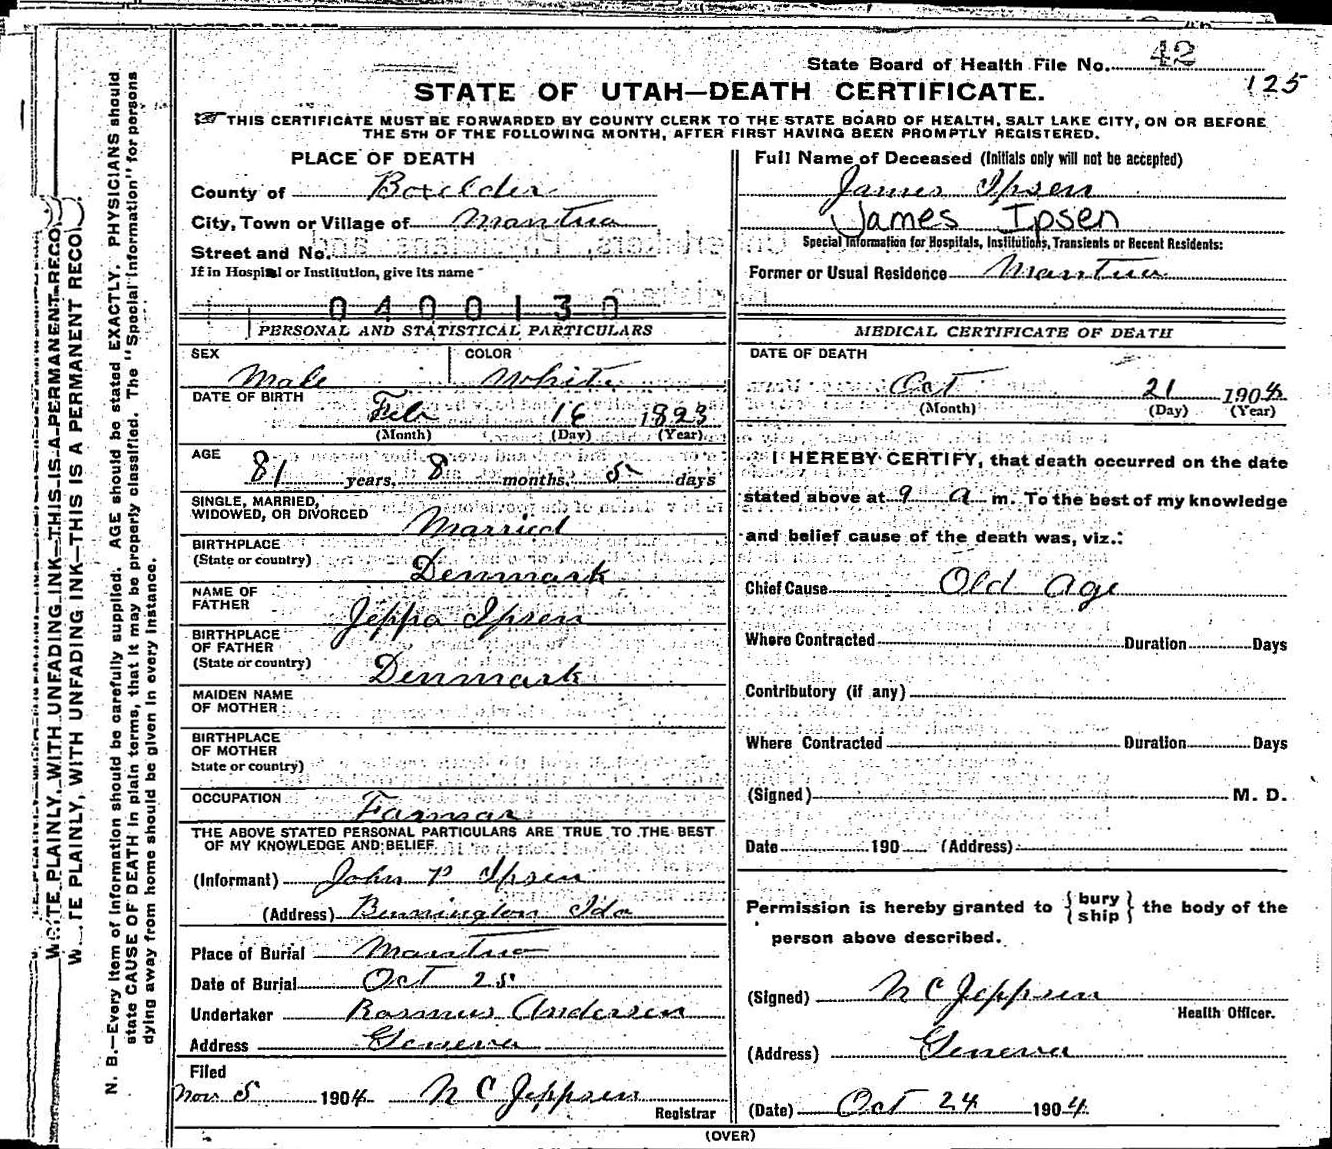 State Board of Health File No. 42
125
STATE OF UTAH—DEATH CERTIFICATE.
THIS CERTIFICATE MUST BE FORWARDED BY COUNTY CLERK TO THE STATE BOARD OF HEALTH, SALT LAKE CITY, ON OR BEFORE
THE 5TH OF THE FOLLOWING MONTH, AFTER FIRST HAVING BEEN PROMPTLY REGISTERED.
PLACE OF DEATH
County of Boxelder
City, Town or Village of Mantua
Street and No.
If in Hospital or Institution, give its name
0400130
Full Name of Deceased (Initials only will not be accepted)
James Ipsen
James Ipsen
Special Information for Hospitals, Institutions, Transients or Recent Residents:
Former or Usual Residence Mantua
PERSONAL AND STATISTICAL PARTICULARS
SEX Male COLOR White
DATE OF BIRTH
Feb 16 1823
(Month) (Day) (Year)
AGE
81 years, 8 months, 5 days
SINGLE, MARRIED,
WIDOWED, OR DIVORCED Married
BIRTHPLACE
(State or country) Denmark
NAME OF
FATHER Jeppa Ipsen
BIRTHPLACE
OF FATHER
(State or country) Denmark
MAIDEN NAME
OF MOTHER
BIRTHPLACE
OF MOTHER
State or country)
OCCUPATION Farmar
THE ABOVE STATED PERSONAL PARTICULARS ARE TRUE TO THE BEST
OF MY KNOWLEDGE AND BELIEF
(Informant) John P Ipsen
(Address) Bennington Ida
Place of Burial Mantua
Date of Burial Oct 25
Undertaker Rasmus Andersen
Address Geneva
Filed
Nov 5 1904 N C Jeppsen
Registrar
MEDICAL CERTIFICATE OF DEATH
DATE OF DEATH
Oct 21 1904
(Month) (Day) (Year)
I HEREBY CERTIFY, that death occurred on the date
stated above at 9 a m. To the best of my knowledge
and belief cause of the death was, viz.:
Chief Cause Old Age
Where Contracted Duration Days
Contributory (if any)
Where Contracted Duration Days
(Signed) M. D.
Date 190 (Address)
Permission is hereby granted to {bury
ship} the body of the
person above described.
(Signed) N C Jeppsen
Health Officer.
(Address) Geneva
(Date) Oct 24 1904
(OVER)
WRITE PLAINLY, WITH UNFADING INK—THIS IS A PERMANENT RECO
W TE PLAINLY, WITH UNFADING INK—THIS IS A PERMANENT RECO
N. B.—Every item of information should be carefully supplied. AGE should be stated EXACTLY. PHYSICIANS should
state CAUSE OF DEATH in plain terms, that it may be properly classified. The "Special Information" for persons
dying away from home should be given in every instance.